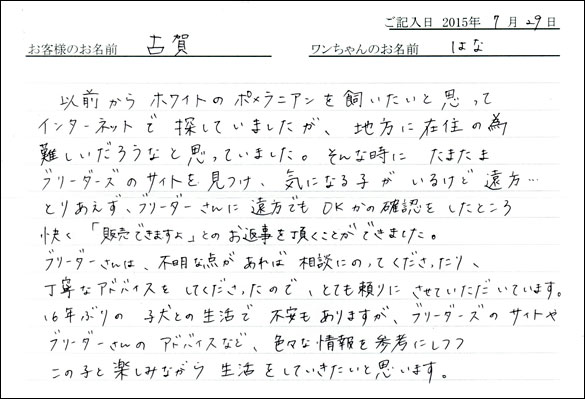 ご記入日 2015年 7月 29日
お客様のお名前 古賀 ワンちゃんのお名前 はな
以前から ホワイトの ポメラニアンを 飼いたいと 思って
インターネットで 探していましたが、地方に在住の為
難しいだろうなと 思っていました。そんな時に たまたま
ブリーダーズ のサイトを 見つけ、気になる子が いるけど 遠方…
とりあえず、ブリーダーさんに 遠方でも OKかの確認を したところ
快く 「販売できますよ」との お返事を頂くことができました。
ブリーダーさんは、不明な点が あれば 相談にのってくださったり、
丁寧なアドバイスを してくださったので、とても頼りに させていただいています。
16年ぶりの 子犬との生活で 不安もありますが、ブリーダーズ の サイトや
ブリーダーさんの アドバイスなど、色々な情報を参考にしつつ
この子と 楽しみながら 生活をしていきたいと思います。